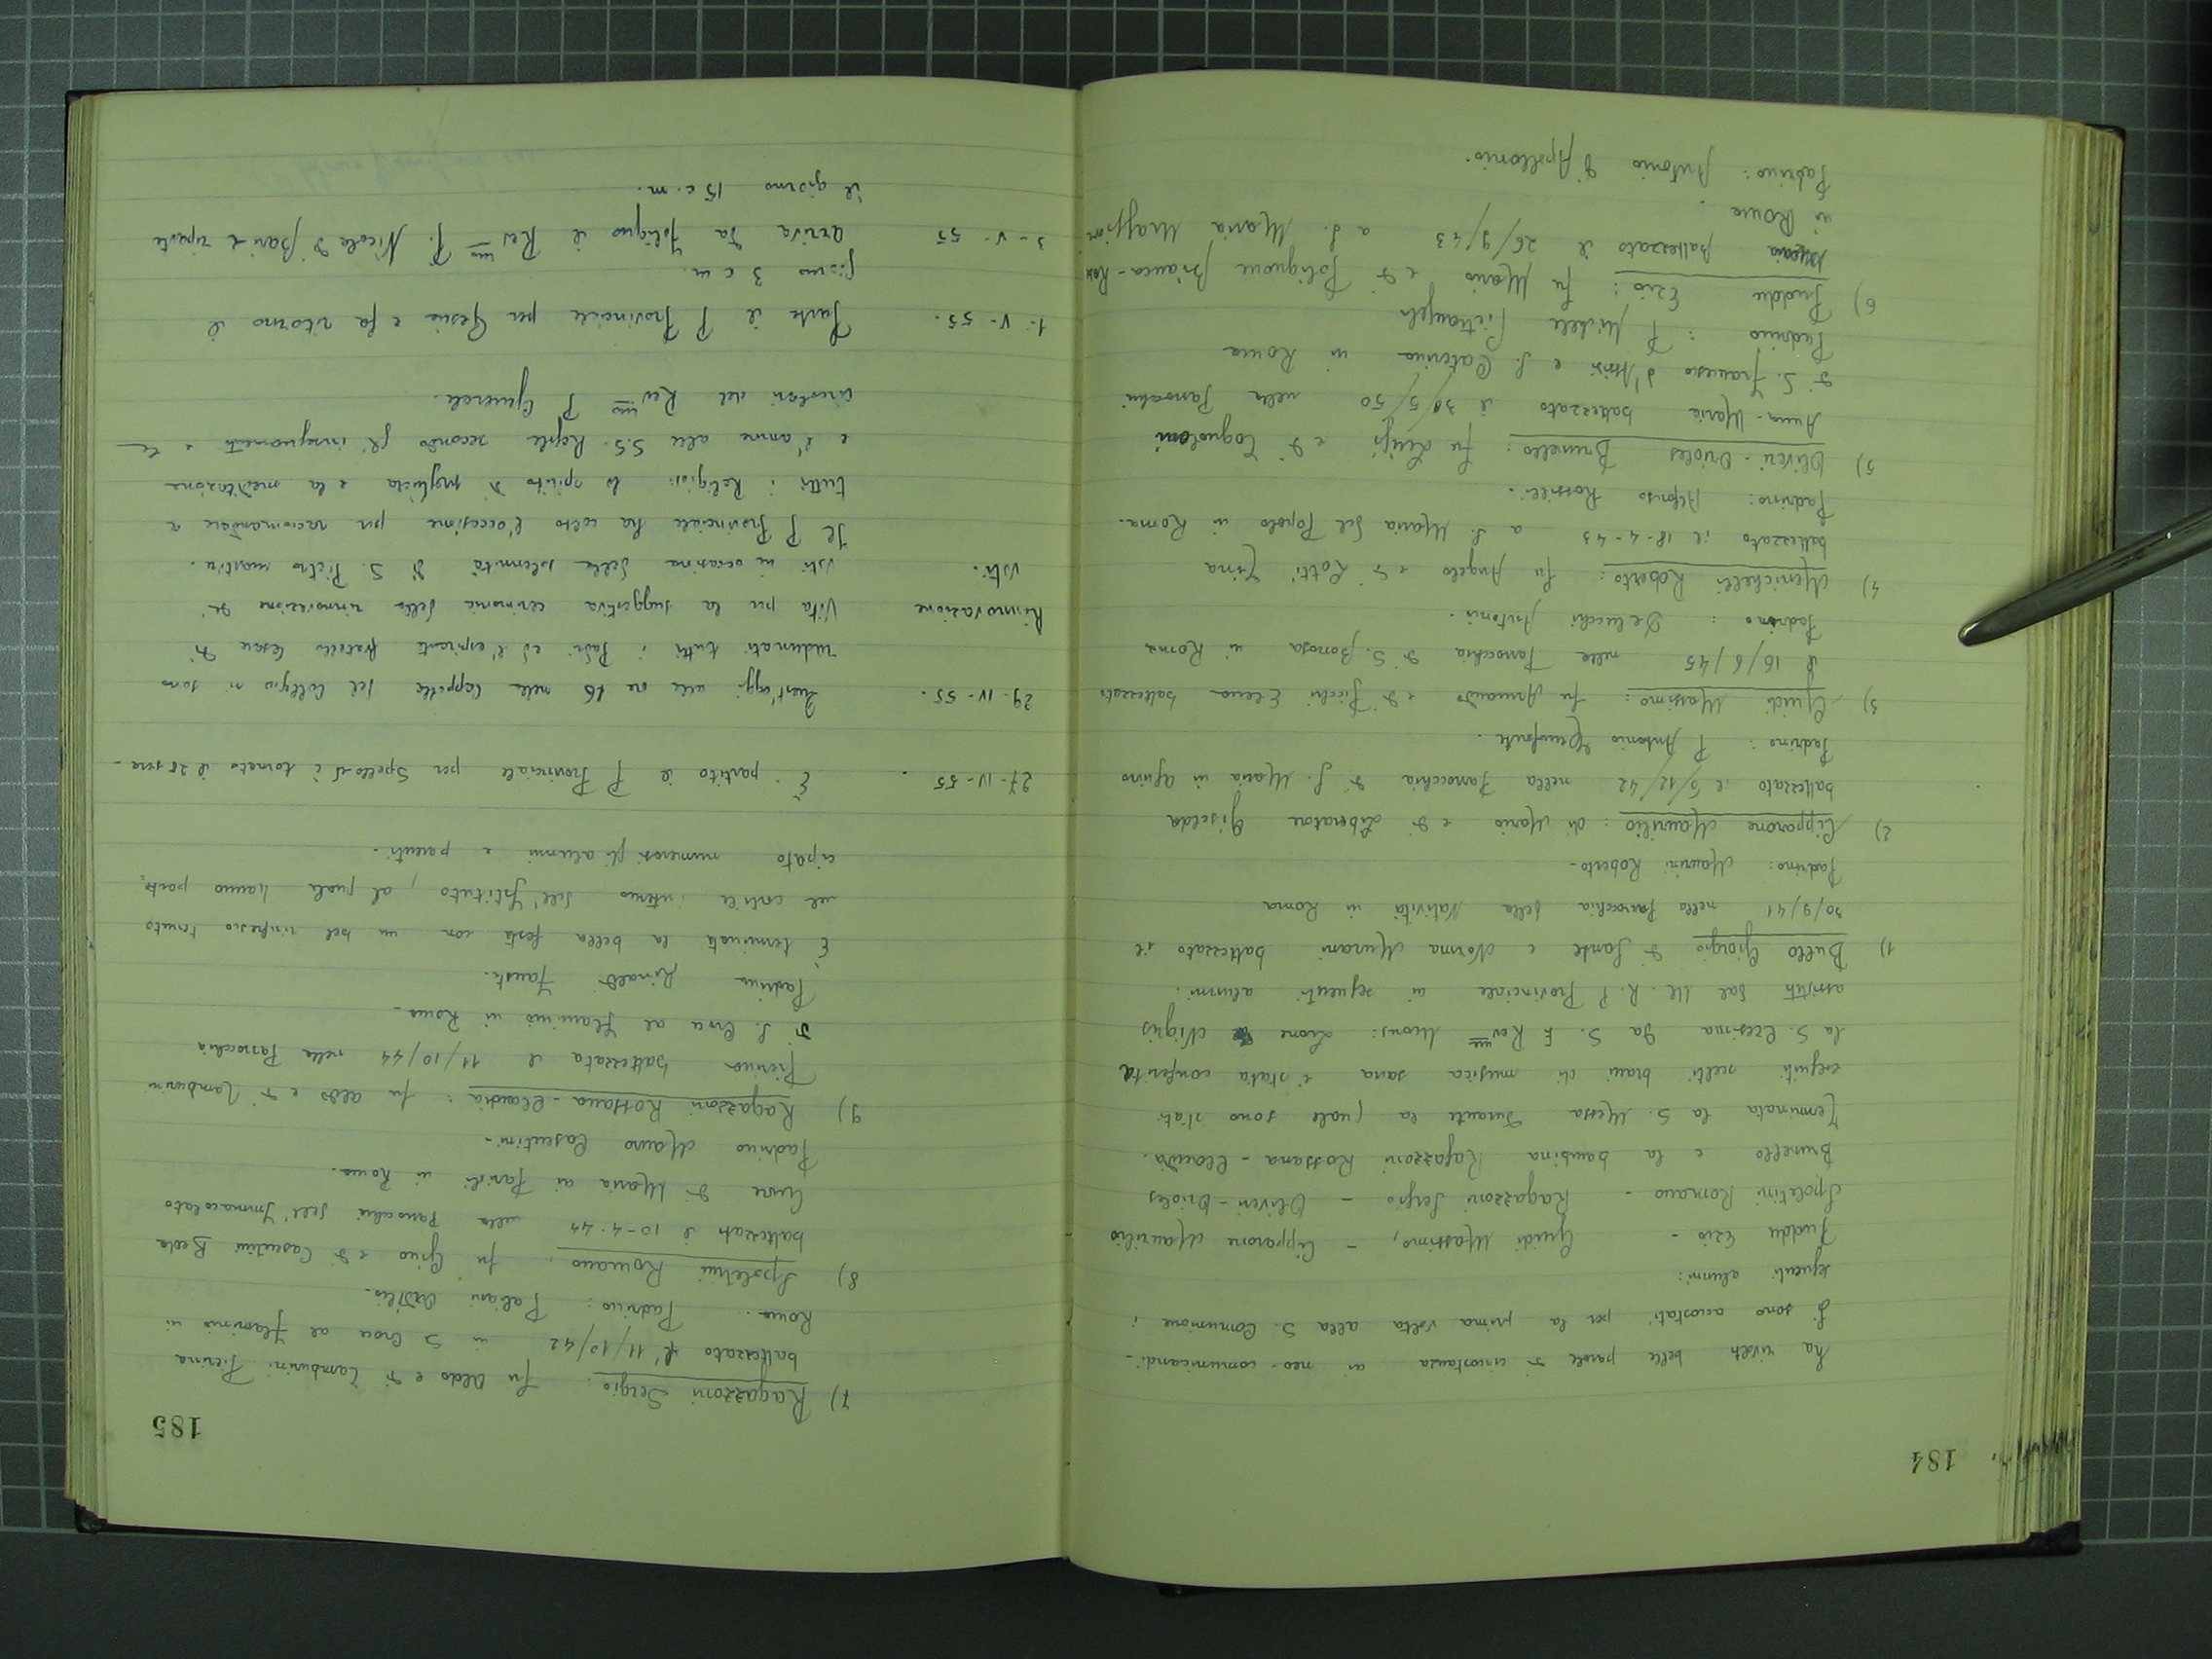 184
ha rivolti belle parole di circostanza ai neo-comunicandi-
Si sono accostati per la prima volta alla S. Comunione i
seguenti alunni:
Puddu Ezio - Guidi Massimo, - Cipparone Maurilio
Spoletini Romano - Ragazzoni Sergio - Oliveri-Orioles
Brunello e la bambina Ragazzoni Rossana-Claudia.
Terminata la S. Messa durante la quale sono stati
eseguiti scelti brani di musica sacra è stata conferita
la S. Cresima da S. E Rev.ma Mons: Leone Nigris
assistiti dal M. R. P. Provinciale ai seguenti alunni.
1) Bullo Giorgio di Sante e Norma Murani battezzato il
30/9/41 nella Parrocchia della Natività in Roma
Padrino: Maurini Roberto-
2) Cipparone Maurilio: di Mario e di Liberatore Giselda
battezzato il 6/12/42 nella Parrocchia di S. Maria in Aquiro
Padrino: P. Antonio
3) Guidi Massimo: fu Armando e di Picchi Elena battezzato
il 16/6/45 nella Parrocchia di S. Bonosa in Roma
Padrino: Delucchi Antonio.
4) Menichelli Roberto: fu Angelo e di Lotti Zina
battezzato il 18-4-43 a S. Maria del Popolo in Roma.
Padrino: Alfonso Rossilli.
5) Oliveri-Orioles Brunello: fu Luigi e di Cognoloni
Anna-Maria battezzato il 30/5/50 nella Parrocchia
di S. Francesco d'Assisi e S. Caterina in Roma
Padrino: P Michele Pietrangeli
6) Puddu Ezio: fu Mario e di Folignone Bianca-Rosa
battezzato il 26/9/43 a S. Maria Maggiore
in Roma.
Padrino: Antonio D'Apollonio.
185
7) Ragazzoni Sergio: fu Aldo e di Tamburini Pierina
battezzato l'11/10/42 in S Croce al Flaminio in
Roma. Padrino: Paliani Odilio.
8) Spoletini Romano: fu Gino e di Casentini
battezzato il 10-4-44 nella Parrocchia dell'Immacolato
Cuore di Maria ai Parioli in Roma.
Padrino Mauro Casentini-
9) Ragazzoni Rossana-Claudia: fu Aldo e di Tamburini
Pierina battezzata il 11/10/44 nella Parrocchia
di S. Croce al Flaminio in Roma-
Padrino Rinaldi Fausto.
È terminata la bella festa con un bel rinfresco tenuto
nel cortile interno dell'Istituto, al quale hanno parte-
cipato numerosi gli alunni e parenti.
27-IV-55. È partito il P Provinciale per Spello ed è tornato il 28 sera-
29-IV-55. Quest'oggi alle ore 16 nella Cappella del Collegio si sono
radunati tutti i Padri ed l'aspirante fratello Cesare di
Rinnovazione Vita per la suggestiva cerimonia della rinnovazione di
voti. voti in occasione della solennità di S. Pietro martire.
Il P Provinciale ha colto l'occasione per raccomandare a
tutti i Religiosi lo spirito di preghiera e la meditazione
e l'amore alle S.S. Regole secondo gli insegnamenti e le
circolari del Rev.mo P Generale.
1-V-55. Parte il P Provinciale per Gesia e fa ritorno il
giorno 3 c m.
3-V-55 Arriva da Foligno il Rev.mo P. Nicola di Bari e riparte
il giorno 15 c.m.